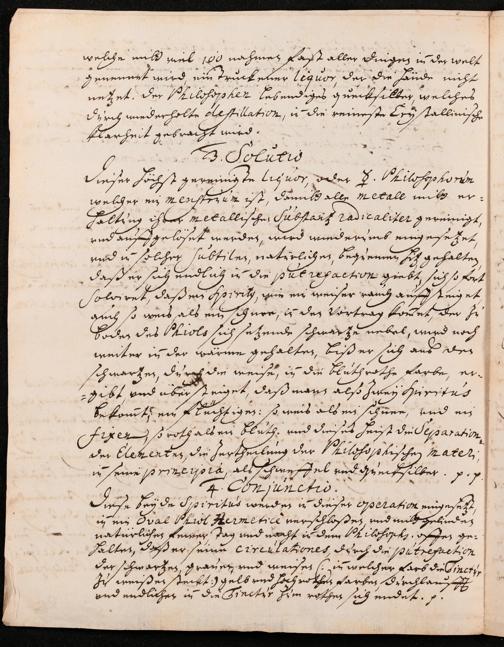 welche mild viel 100 nahmen, fast aller dinge in der welt
genennet wird, ein truckener liquor der die hände nicht
netzet. der Philosopher lebendiges queckſilber, welches
durch wiederholte destillation, in die reineste Crystallinische
klarheit gebracht wird.
3. Solutio
Dieser höchst gereinigte liquor, oder ☿. Philosophorum
welcher ein menstruum ist, damit alle metall mit er-
haltung ihrer metallischen Substanz radicaliter gereinigt,
und auffgelöset werden, wird wiederumb eingesetzet
und in solcher subtilen, natürlichen, gehalten,
daß er sich endlich in die putrefaction giebt, sich so fort
Solviret, daß ein Spiritus, wie ein weiser rauch auffsteiget
auch so weis als ein schnee, in den Vortrag kommt, der zu
boden des Phiols sich setzende schwartze nebel, wird noch
weiter in der wärme gehalten, biß er sich aus der
schwartzen, durch die weise, in die blutrothe farbe, er-
gibt und übersteiget, daß man also zwey Spiritus
bekommt, ein flüchtiges: so weis als ein schnee, und ein
fixer, so roth als ein bluth. und dieses heist die Separation
der Elementen, die zertheilung der Philosophischen materi,
in seine principia, als schweffel und queckſilber. p. p.
4. Conjunctio.
Diese beyde Spiritus werden in dieser operation eingesetzt,
in ein Oval Phiol Hermeticè verschloßen, und mit gelinden
natürlichen feuer tag und nacht in dem Philosoph. offen ge-
halten, daß er seine circulationes, durch die putrefaction
der schwartzen, grauen, und weisen (: in welcher farb die Tinctur
zu weißen steckt:) gelb und hochrothen farben durchlauff
und endlichen in die Tinctur zum rothen sich endet. p.